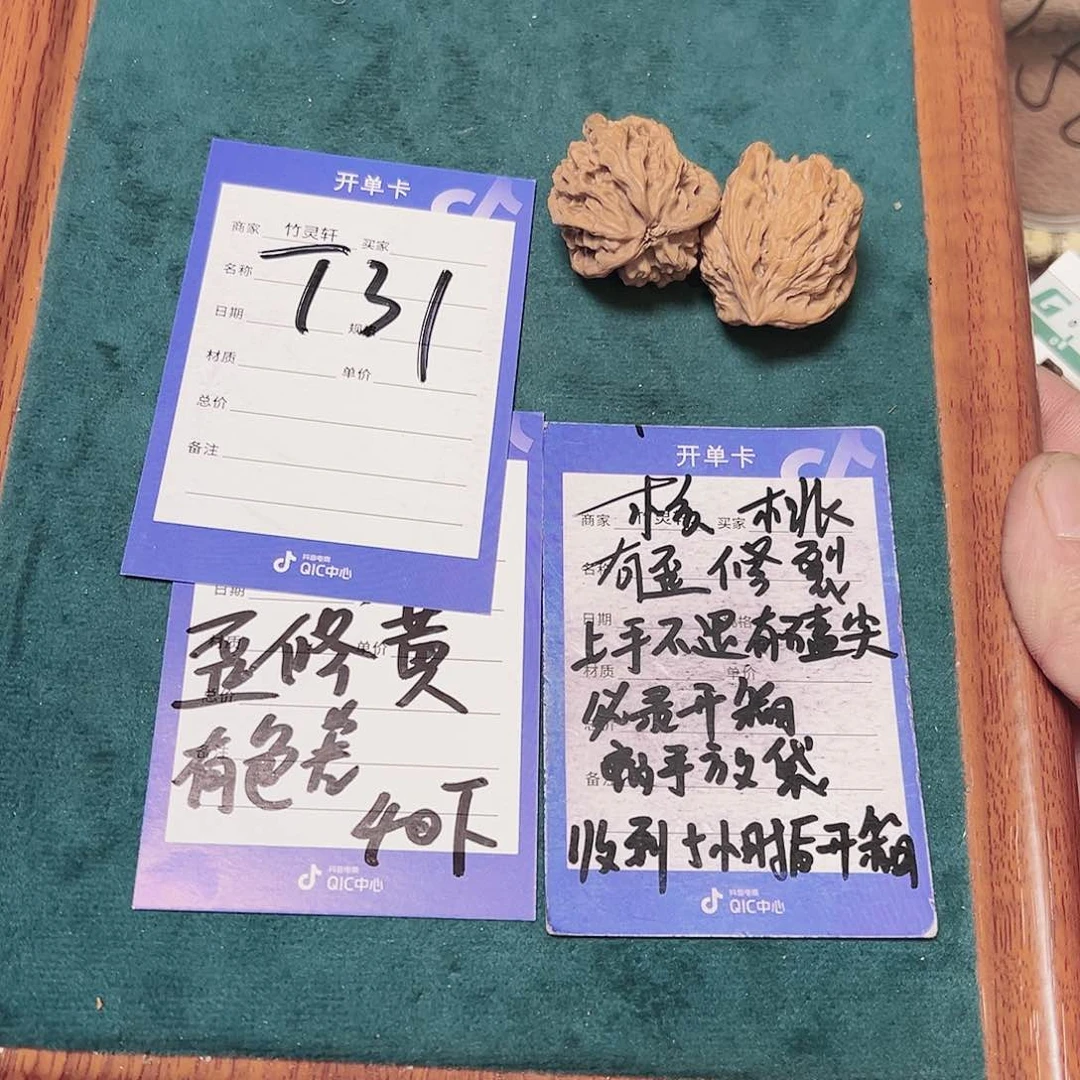 开单卡
商家 竹灵轩 买家
名称
T31
日期 规格
材质 单价
总价
备注
抖音电商
QIC中心
日期
材质 单价
歪修黄
总价
备注
有色差
40下
抖音电商
QIC中心
开单卡
商家 竹灵轩 买家
核桃
名称
有歪修裂
日期 规格
上手不退有磕尖
材质 单价
必录开箱
备注
收到 小时后开箱
抖音电商
QIC中心
G